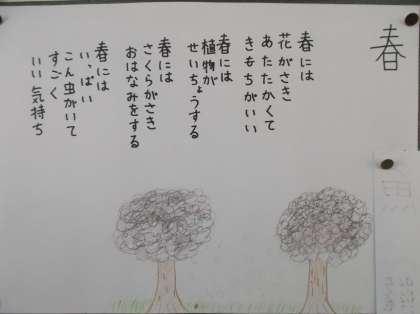 春
春には
花がさき
あたたかくて
きもちがいい
春には
植物が
せいちょうする
春には
さくらがさき
おはなみをする
春には
いっぱい
こん虫がいて
すごく
いい気持ち